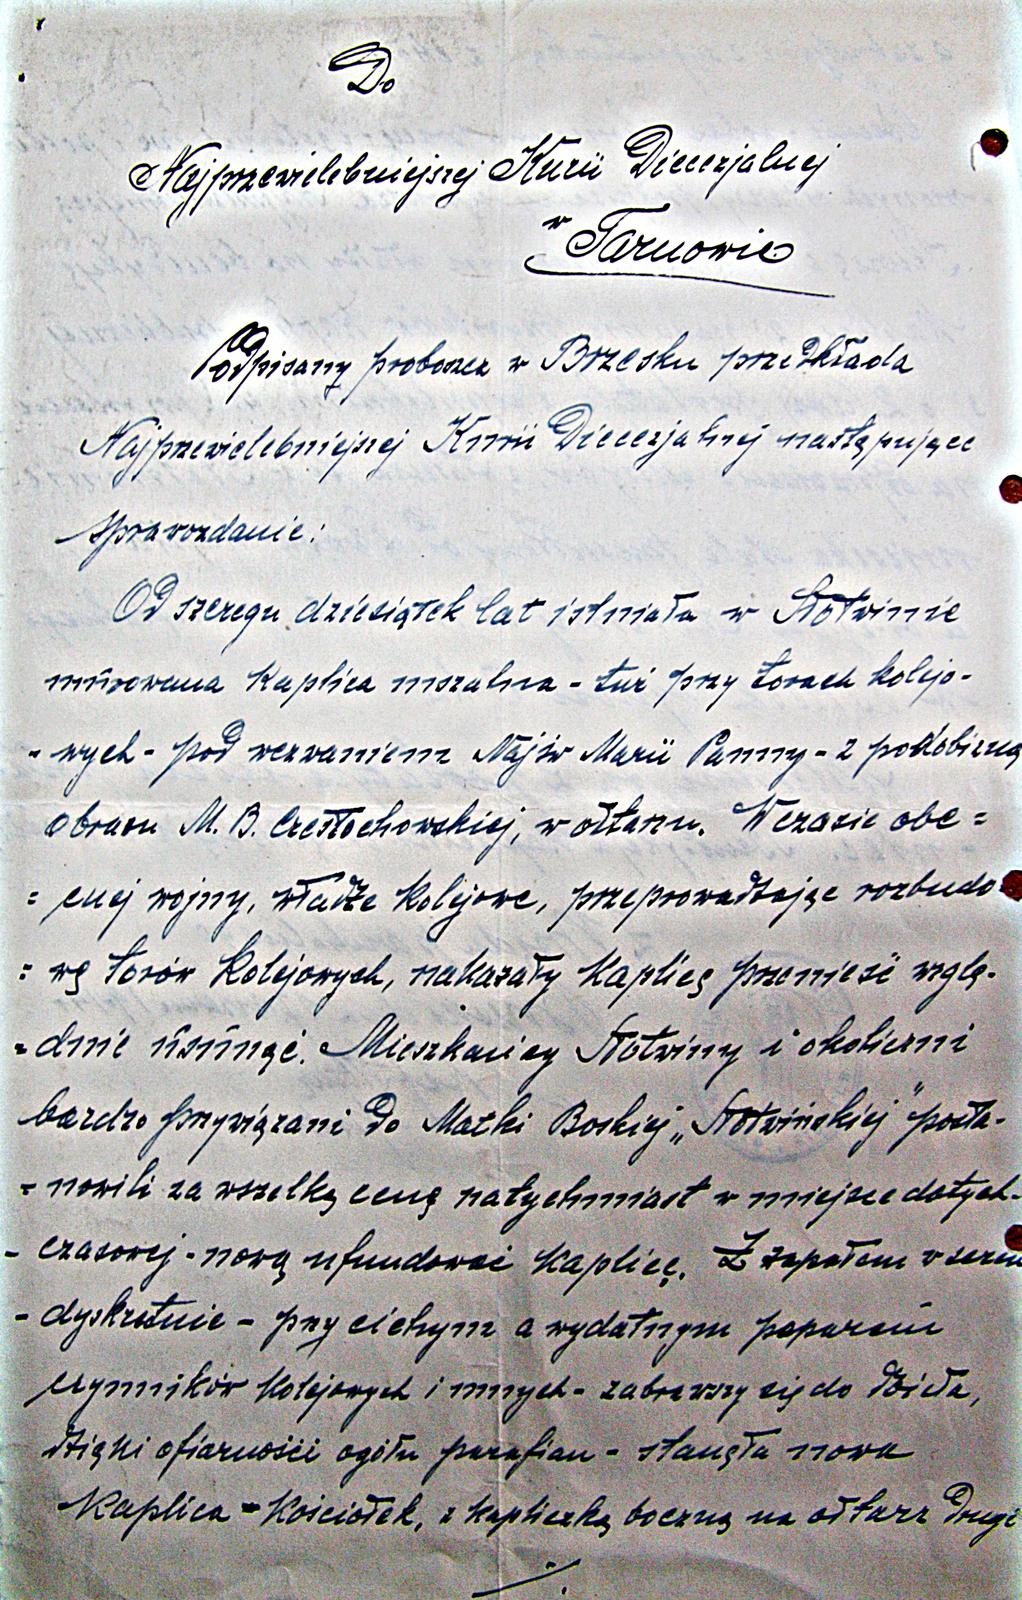 Do
Najprzewielebniejszej Kurii Diecezjalnej
w Tarnowie
Podpisany proboszcz w Brzesku przedkłada
Najprzewielebniejszej Kurii Diecezjalnej następujące
sprawozdanie:
Od szeregu dziesiątek lat istniała w Słotwinie
murowana Kaplica mszalna - tuż przy torach kolejo-
- wych - pod wezwaniem Najśw Marii Panny - z podobizną
obrazu M. B. Częstochowskiej, w ołtarzu. W czasie obe =
= cnej wojny, władze kolejowe, przeprowadzając rozbudo-
= wę torów kolejowych, nakazały Kaplicę przenieść wzglę-
- dnie usunąć. Mieszkańcy Słotwiny i okoliczni
bardzo przywiązani do Matki Boskiej „Słotwińskiej" posta-
- nowili za wszelką cenę natychmiast w miejsce dotych-
- czasowej - nową ufundować Kaplicę. Z zapałem w sercu
- dyskretnie - przy cichym a wydatnym poparciu
czynników kolejowych i innych - zabrawszy się do dzieła,
dzięki ofiarności ogółu parafian - stanęła nowa
Kaplica - Kościółek, z kapliczką boczną na ołtarz drugi
./.